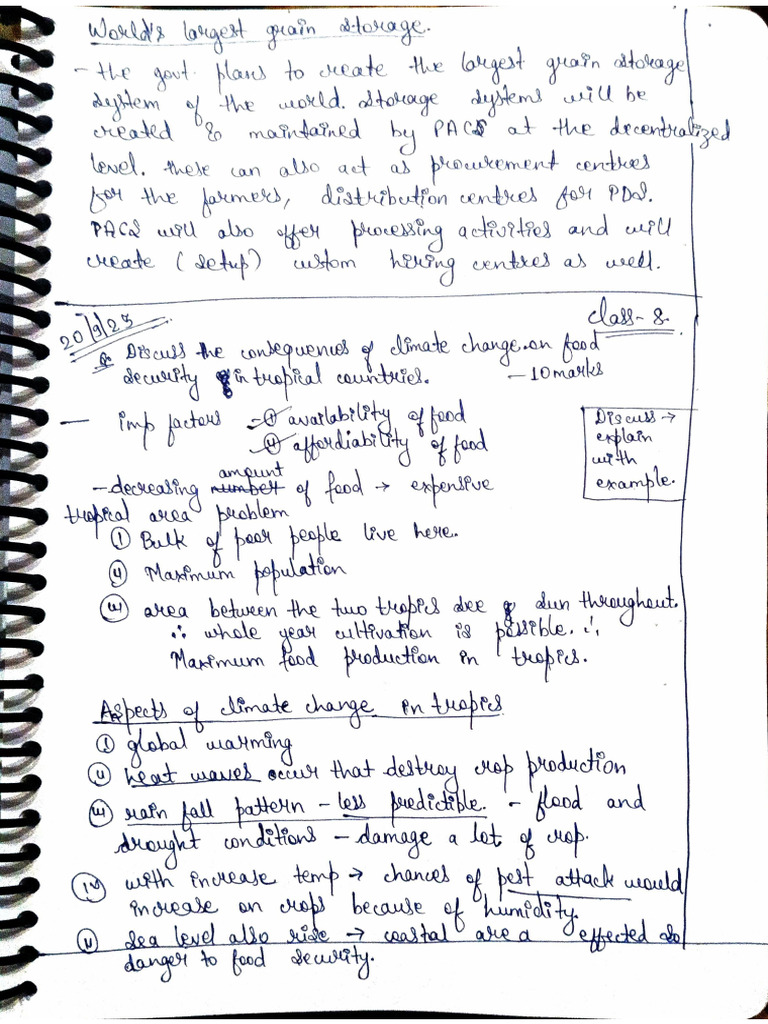 World's largest grain storage.
- the govt. plans to create the largest grain storage
system of the world. Storage systems will be
created & maintained by PACS at the decentralized
level. these can also act as procurement centres
for the farmers, distribution centres for PDS.
PACS will also offer processing activities and will
create (setup) custom hiring centres as well.
20/9/23
class-8.
Q. Discuss the consequences of climate change on food
security in tropical countries. - 10 marks
- imp factors - (i) availability of food
(ii) affordiability of food
Discuss →
explain
with
example.
- decreasing number amount of food → expensive
tropical area problem
(i) Bulk of poor people live here.
(ii) Maximum population
(iii) area between the two tropics see sun throughout.
∴ whole year cultivation is possible. ∴
Maximum food production in tropics.
Aspects of climate change in tropics
(i) global warming
(ii) heat waves occur that destroy crop production
(iii) rain fall pattern - less predictible. - flood and
drought conditions - damage a lot of crop.
(iv) with increase temp → chances of pest attack would
increase on crops because of humidity.
(v) sea level also rise → coastal area effected so
danger to food security.